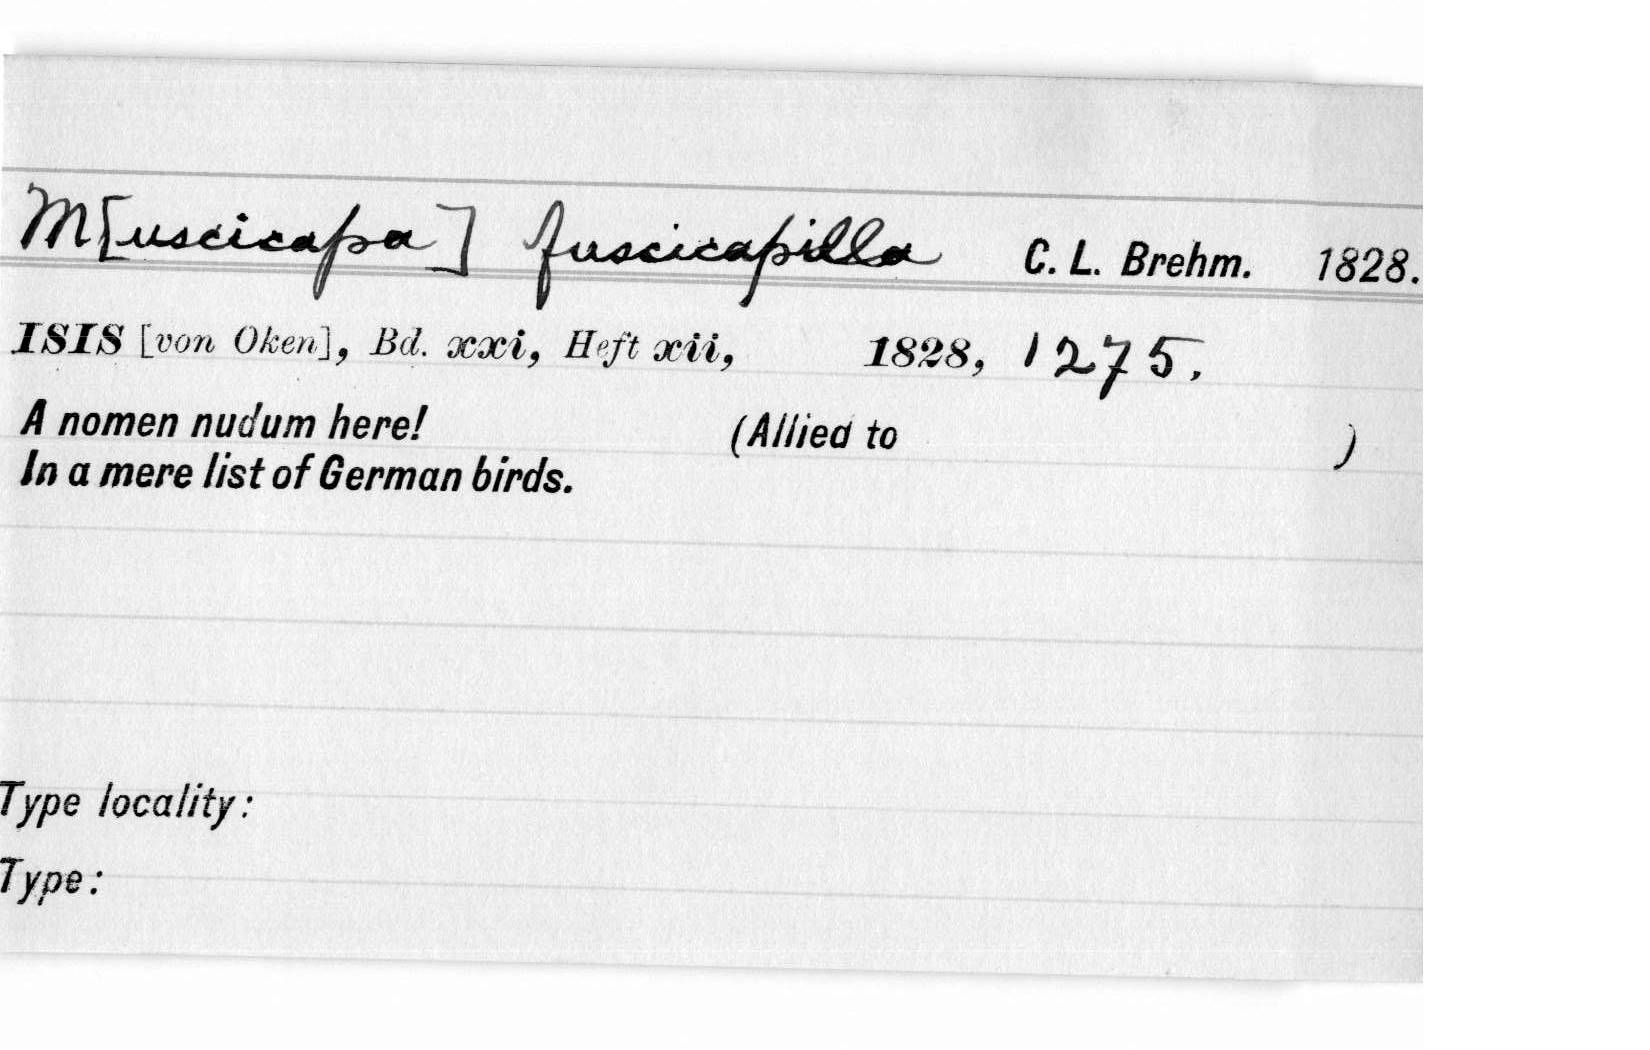 M[uscicapa] fuscicapilla C. L. Brehm. 1828.
ISIS [von Oken], Bd. xxi, Heft xii, 1828, 1275.
A nomen nudum here! (Allied to )
In a mere list of German birds.
Type locality:
Type: